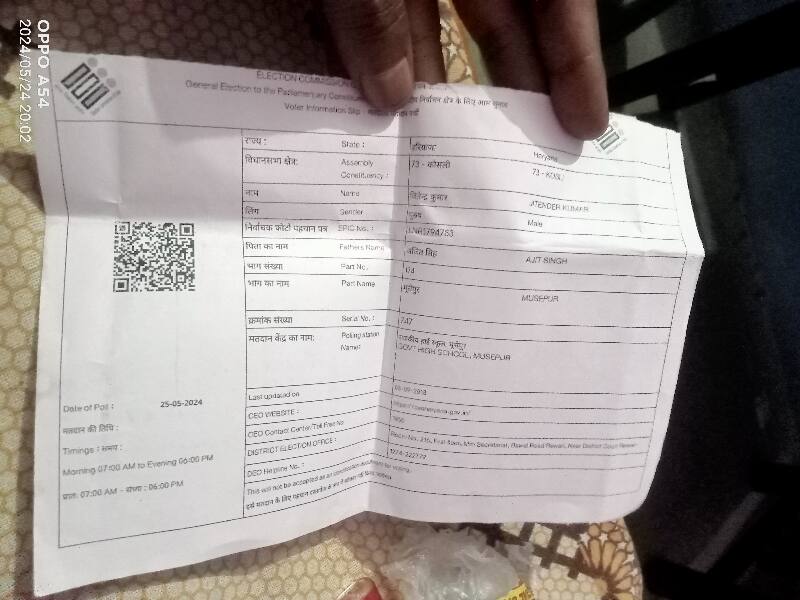 OPPO A54
2024/05/24 20:02
ELECTION COMMISSION
General Election to the Parliamentary निर्वाचन क्षेत्र के लिए आम चुनाव
Voter Information Slip : मतदाता सूचना पर्ची
राज्य : State : हरियाणा Haryana
विधानसभा क्षेत्र: Assembly Constituency : 73 - कोसली 73 - KOSLI
नाम Name जितेन्द्र कुमार JITENDER KUMAR
लिंग Gender पुरुष Male
निर्वाचक फोटो पहचान पत्र EPIC No. :
पिता का नाम Fathers Name अजित सिंह AJIT SINGH
भाग संख्या Part No.
भाग का नाम Part Name मूसेपुर MUSEPUR
क्रमांक संख्या Serial No. : 747
मतदान केंद्र का नाम: Polling station Name: राजकीय हाई स्कूल, मूसेपुर
GOVT HIGH SCHOOL, MUSEPUR
Date of Poll : 25-05-2024
मतदान की तिथि :
Timings : समय :
Morning 07:00 AM to Evening 06:00 PM
प्रातः 07:00 AM - संध्या : 06:00 PM
Last updated on
CEO WEBSITE :
CEO Contact Center/Toll Free No 1950
DISTRICT ELECTION OFFICE : Room No. 216, First floor, Mini Secretariat, Rewari
DEO Helpline No. :
This will not be accepted as an identification document for voting.